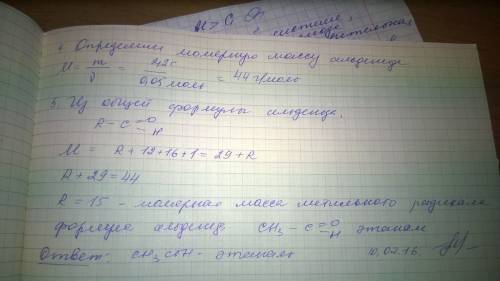 4. Определим молярную массу альдегида
M = m/ν = 2,2г / 0,05 моль = 44 г/моль
5. Из общей формулы альдегида,
R – C =O H
M = R + 12 + 16 + 1 = 29 + R
R + 29 = 44
R = 15 – молярная масса метильного радикала
формула альдегида CH₃ – C =O H этаналь
Ответ: CH₃ – этаналь
10.02.16